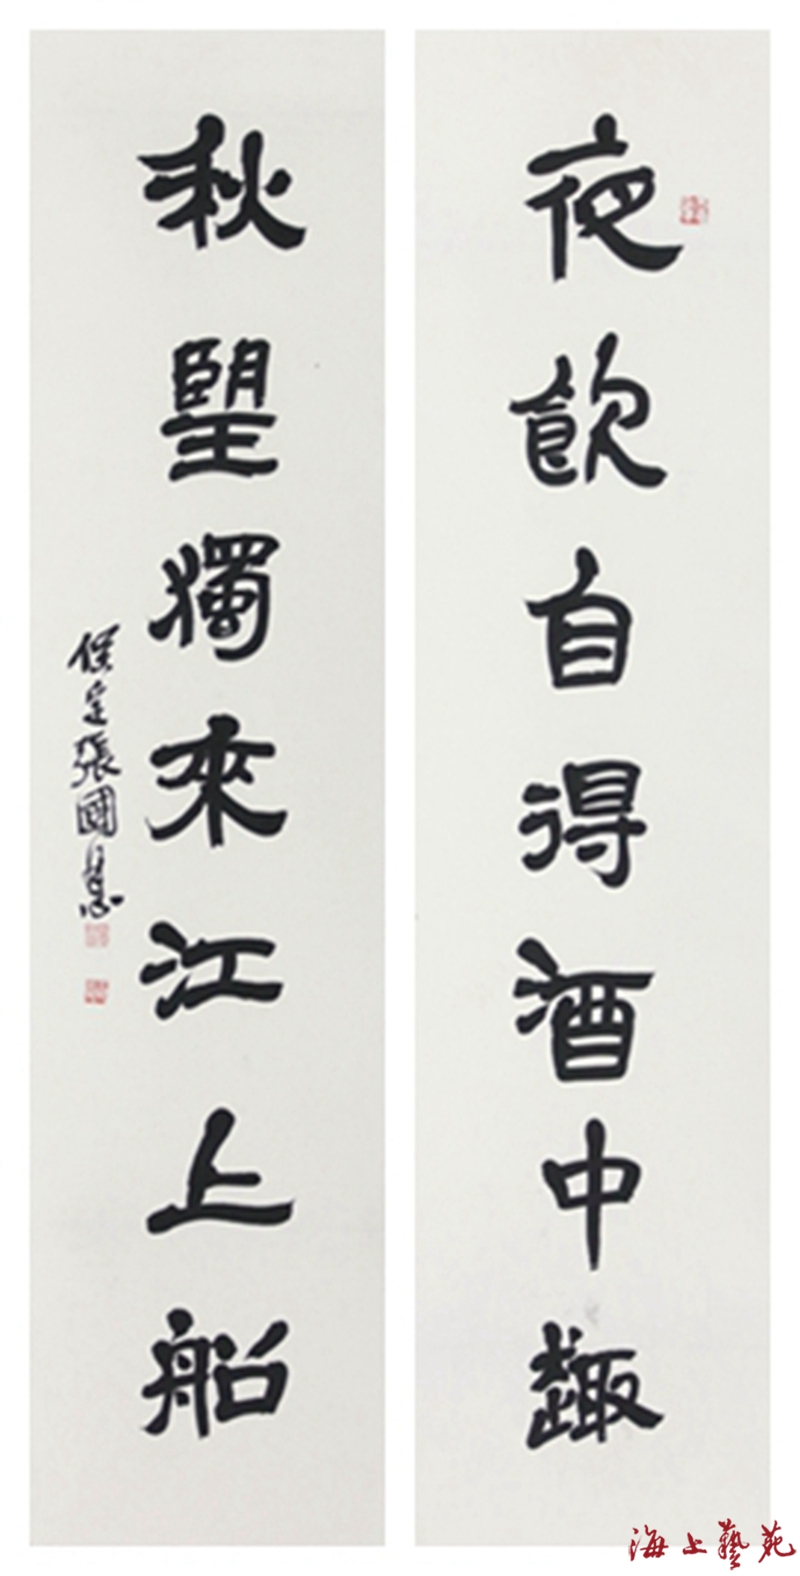 夜飲自得酒中趣
秋望獨來江上船
保定張國慧
海上藝苑